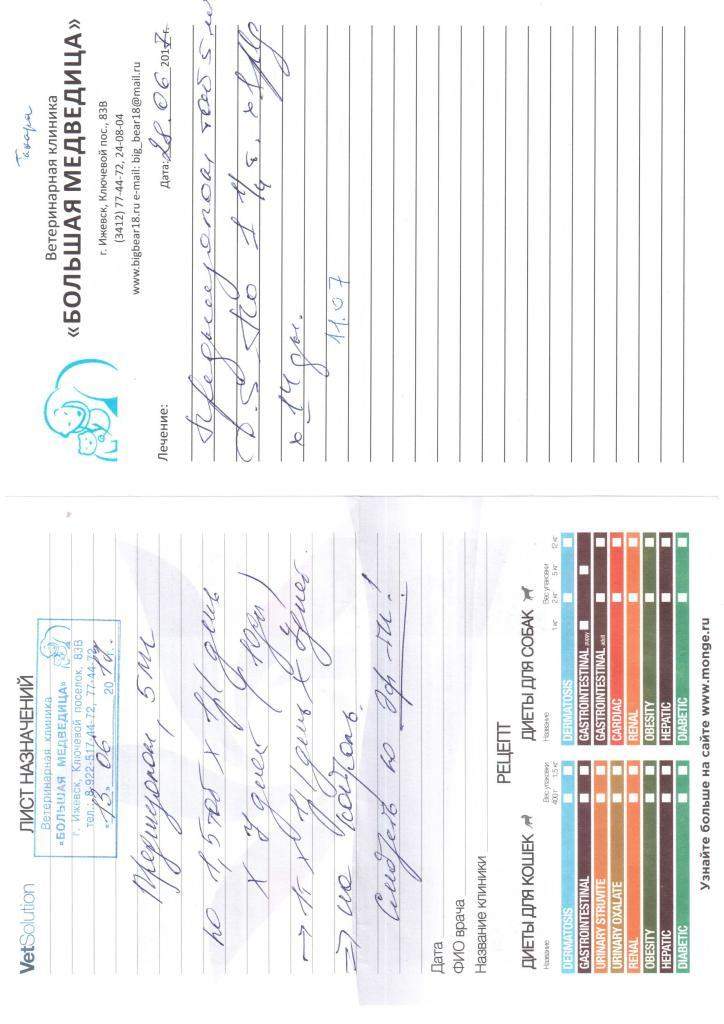 VetSolution ЛИСТ НАЗНАЧЕНИЙ
Ветеринарная клиника
«БОЛЬШАЯ МЕДВЕДИЦА»
г. Ижевск, Ключевой поселок, 83В
тел.: 8-922-517-44-72, 77-44-72
«13» 06 2017 г.
5 мг
по 1,5 таб х 1р/день
х 7 дней
→ 1т х 1р/день х 7 дней
⇒ на
по
Дата
ФИО врача
Название клиники
РЕЦЕПТ
ДИЕТЫ ДЛЯ КОШЕК
Название Вес упаковки
400 г 1,5 кг
DERMATOSIS
GASTROINTESTINAL
URINARY STRUVITE
URINARY OXALATE
RENAL
OBESITY
HEPATIC
DIABETIC
ДИЕТЫ ДЛЯ СОБАК
Название Вес упаковки
1 кг 2 кг 5 кг 12 кг
DERMATOSIS
GASTROINTESTINAL puppy
GASTROINTESTINAL adult
CARDIAC
RENAL
OBESITY
HEPATIC
DIABETIC
Узнайте больше на сайте www.monge.ru
Ветеринарная клиника
«БОЛЬШАЯ МЕДВЕДИЦА»
г. Ижевск, Ключевой пос., 83В
(3412) 77-44-72, 24-08-04
www.bigbear18.ru e-mail: big_bear18@mail.ru
Лечение: Дата: 28.06 2017 г.
таб 5 мг
D.S. по 1 1/4 т. х 1р/д
х 14 дн.
11.07